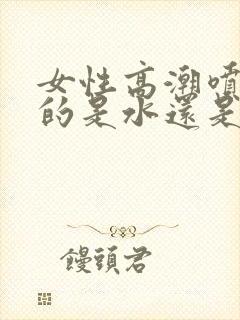 女性高潮噴
的是水還是
饅頭君